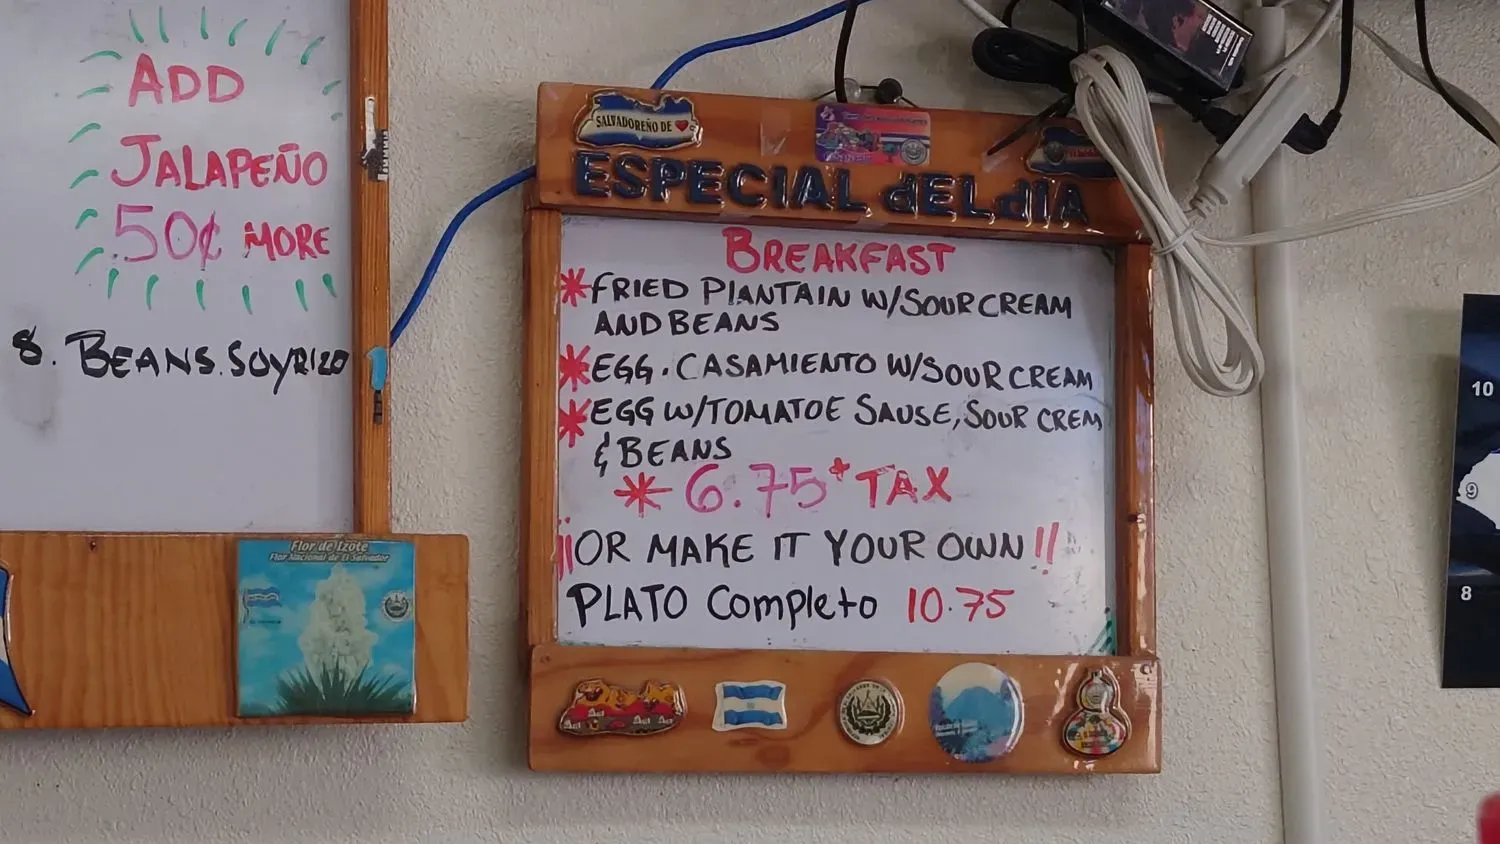 ADD
JALAPEÑO
.50¢ MORE
8. BEANS.SOYRIZO
Flor de Izote
Flor Nacional de El Salvador
SALVADOREÑO DE
ESPECIAL dEL dIA
BREAKFAST
*FRIED PLANTAIN W/SOUR CREAM
AND BEANS
*EGG.CASAMIENTO W/SOUR CREAM
*EGG W/TOMATOE SAUSE, SOUR CREM
& BEANS
* 6.75+ TAX
¡¡OR MAKE IT YOUR OWN!!
PLATO Completo 10.75
10
9
8